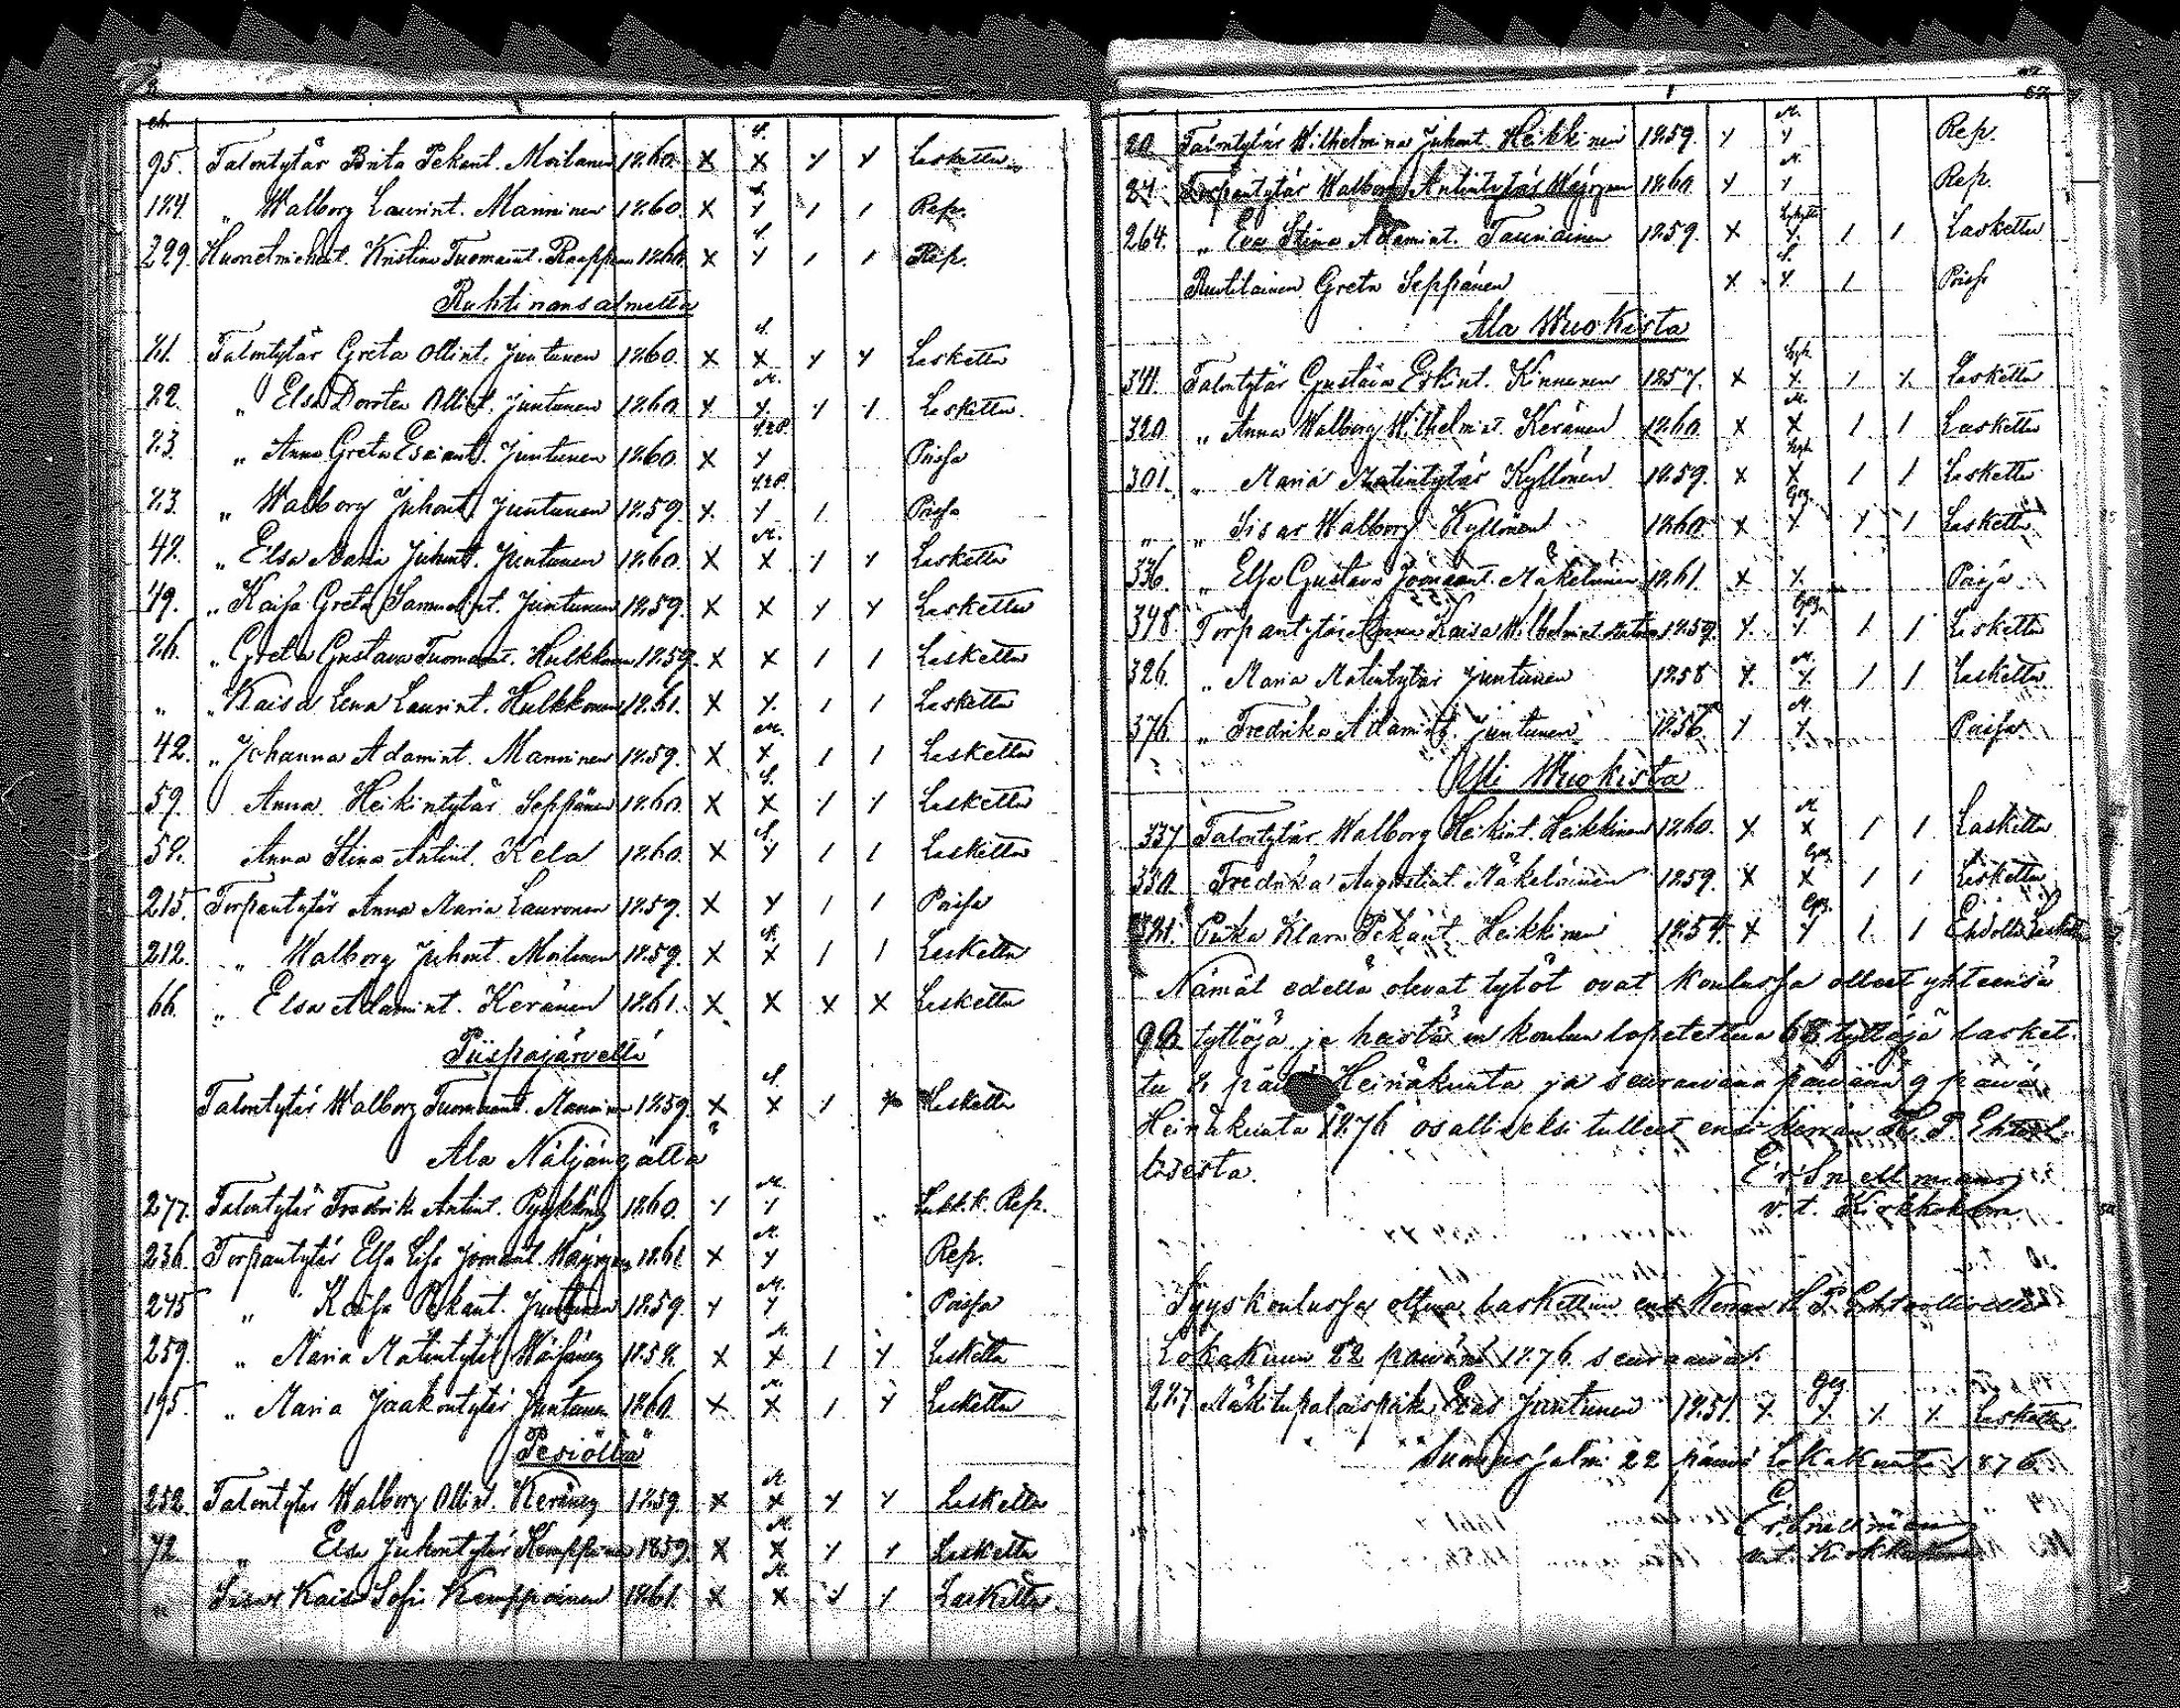 siv.
95. Talontytär Brita Pekant. Moilanen 1860. x S. x y y Laskettu
124 „ Walborg Laurint. Manninen 1860. x S. y / / Rep.
229. Huonelmiehent. Kristina Tuomaant. Raappana 1860. x S. y / / Rep.
Ruhtinansalmelta
21. Talontytär Greta Ollint. Juntunen 1860. x S. x y y Laskettu
22. „ Elsa Dorotea Ollint. Juntunen 1860. y M. y y y Laskettu.
23. „ Anna Greta Esaiant. Juntunen 1860. x y Poissa
23. „ Walborg Juhont. Juntunen 1859. y. y / Poissa
48. „ Elsa Maria Juhont. Juntunen 1860. x M. x y y Laskettu
49. „ Kaisa Greta Samuelint. Juntunen 1859. x x y y Laskettu
26. „ Greta Gustava Tuomaant. Hulkkonen 1859. x x / / Laskettu
„ „ Kaisa Lena Laurint. Hulkkonen 1861. x y. / / Laskettu
42. „ Johanna Adamint. Manninen 1859. x M. x / / Laskettu
59. Anna Heikintytär Seppänen 1860. x S. x y y Laskettu
58. Anna Stina Antint. Kela 1860. x S. y / / Laskettu
215. Torpantytär Anna Maria Lauronen 1859. x y / / Poissa
212. „ Walborg Juhont. Moilanen 1859. x S. x / / Laskettu
66. „ Elsa Adamint. Keränen 1861. x x x x Laskettu
Piispajärveltä
Talontytär Walborg Tuomaant. Manninen 1859. x S. x / Laskettu
Ala Näljängältä
277. Talontytär Fredrika Antint. Pyykköng 1860. y M. y Rep.
236. Torpantytär Elsa Lisa 1861 x M. y Rep.
275 „ Kaisa Pekant. Juntunen 1859. y M. y Poissa
259. „ Maria Matintytär Wäisäneg 1858. x M. x / y Laskettu
195. „ Maria Jaakontytär Juntunen 1860. x M. x / y Laskettu
Pesiöltä
252. Talontytär Walborg Ollint. Keräneg 1859. x M. x y y Laskettu
72 „ Elsa Juhontytär Kemppainen 1859. x M. x y y Laskettu
„ Sisar Kaisa Sofia Kemppainen 1861. x M. x y y Laskettu.
20. Talontytär Wilhelmina Juhont. Heikkinen 1859. y M. y Rep.
24. Torpantytär Walborg Antintytär 1860. y M. y Rep.
264. „ Eva Stina Adamint. Tauriainen 1859. x y / / Laskettu
Ruotilainen Greta Seppänen x S. y / Poiss
Ala Wuokista
Talontytär Gustava Erkint. Kinnunen 1857. x y. y y. Laskettu
320 „ Anna Walborg Wilhelmint. Keränen 1860. x M. x / / Laskettu
301. „ Maria Matintytär Kyllönen 1859. x x / / Laskettu
„ „ Sisar Walborg Kyllönen 1860 x Geg. y y / Laskettu
336. „ Elsa Gustava Joonaant. Mäkeläinen 1861. x y. Poissa
348 Torpantytär Anna Kaisa Wilhelmint. 1859. y. Geg. y / / Laskettu
326. „ Maria Matintytär Juntunen 1858 y. M. y / / Laskettu
376. „ Fredrika Adamint. Juntunen 1856. y M. y Poissa
Yli Wuokista
337 Talontytär Walborg Heikint. Heikkinen 1860. x M x / / Laskettu
330. Fredrika Augustint. Mäkeläinen 1859. x Geg. x / / Laskettu
Piika Klara Pekant. Heikkinen 1854. x Geg. y / / Ehdolla Laskettu
Nämät edellä olevat tytöt ovat koulussa olleet yhteensä
90 tyttöjä ja heistä on koulun lopetettua 68 tyttöjä lasket-
tu 8 päivä Heinäkuuta ja seuraavana päivänä 9 päivä
Heinäkuuta 1876 osalliseksi tulleet ensi kerran H. P. Ehtool-
lisesta.
Er. Snellman
v. t. Kirkkoherra
Syyskoulussa oltua laskettiin ensi kerran H. P. Ehtoolliselle
Lokakuun 22 päivänä 1876. seuraavat.
227 Mäkitupalais piika Eva Juntunen 1851. y. Geg. y. y y. Laskettu.
Suomussalmi 22 päivä Lokakuuta 1876.
Er. Snellman
v. t. Kirkkoherra